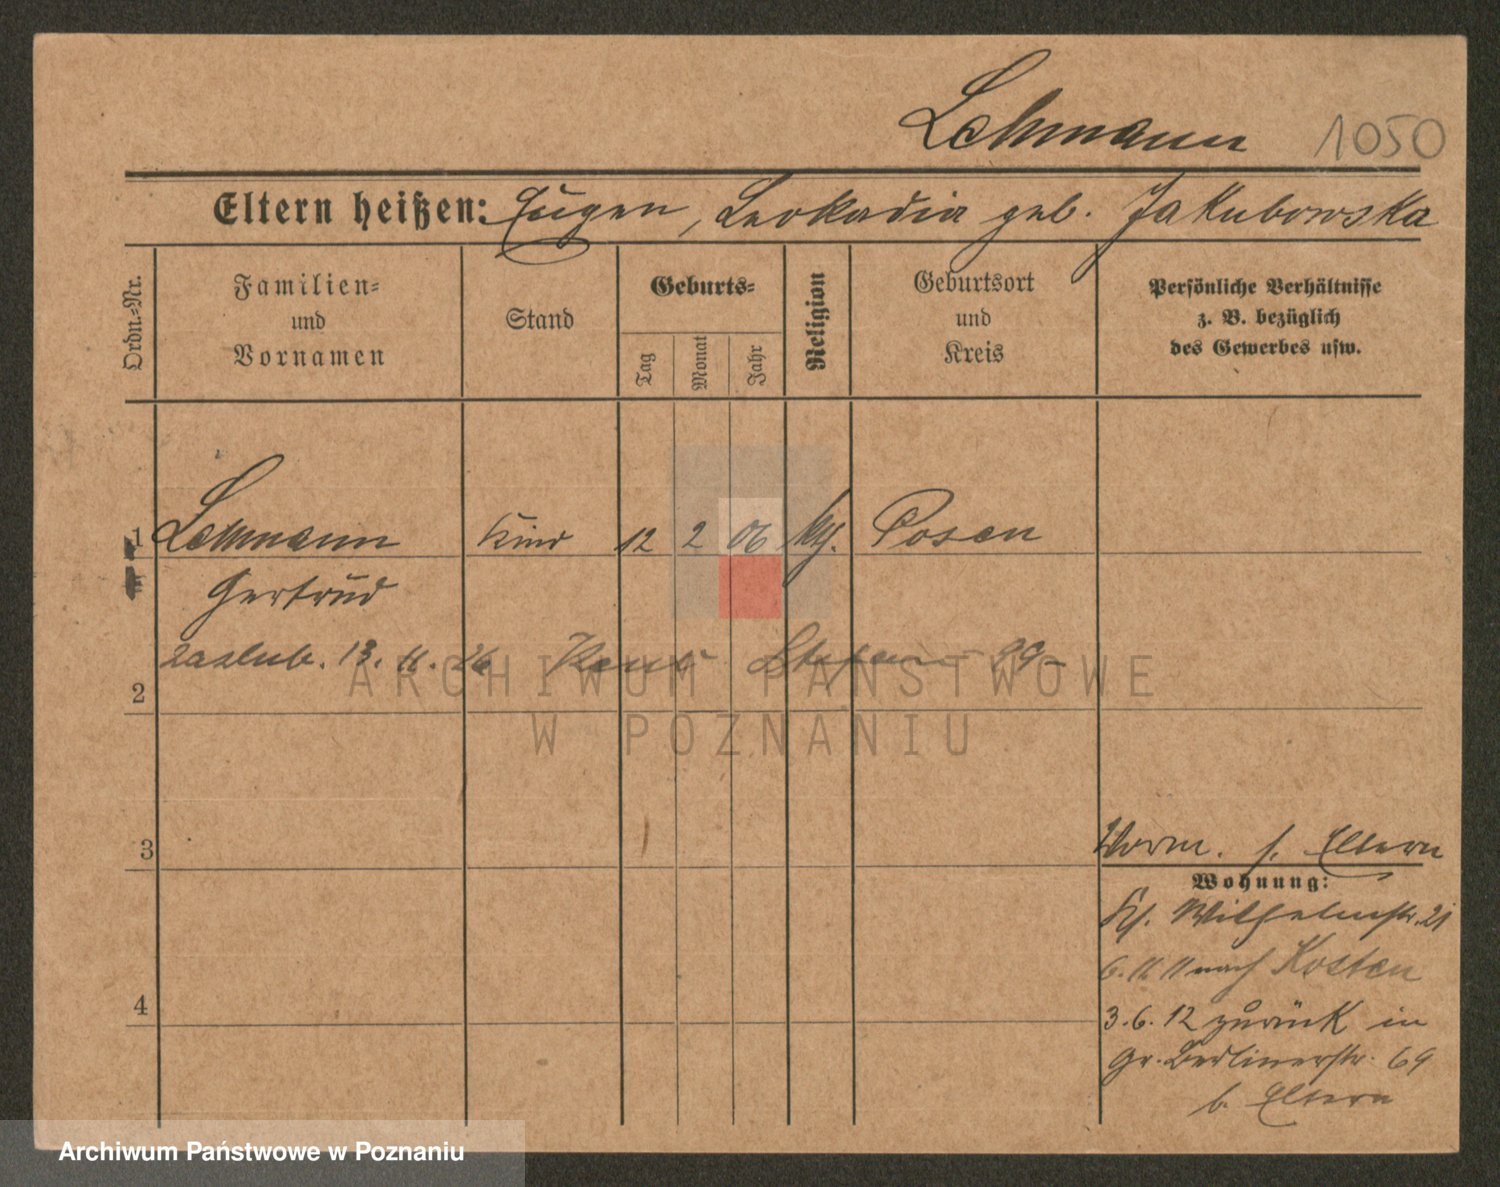 Lehmann 1050
Eltern heißen: Eugen, Leokadia geb. Jakubowska
Ordn.-Nr.
Familien-
und
Vornamen
Stand
Geburts-
Tag
Monat
Jahr
Religion
Geburtsort
und
Kreis
Persönliche Verhältnisse
z. B. bezüglich
des Gewerbes usw.
1 Lehmann Kind 12 2 06 kth. Posen
Gertrud
zaslub. 13. 11. 26 Stefan 29
2
ARCHIWUM PAŃSTWOWE
W POZNANIU
3
Vorm. s. Eltern
Wohnung:
Kl. Wilhelmstr. 21
6. 11. 11 nach Kosten
4
3. 6. 12 zurück in
Gr. Berlinerstr. 69
b. Eltern
Archiwum Państwowe w Poznaniu